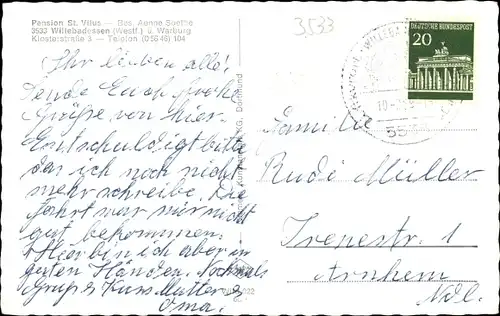 Pension St. Vitus — Bes. Aenne Suethe
3533 Willebadessen (Westf.) ü. Warburg
Klosterstraße 3 — Telefon (05646) 104
3533
DEUTSCHE BUNDESPOST
20
Ihr lieben alle!
Sende Euch frohe
Grüße von hier.
Entschuldigt bitte
das ich noch nicht
mehr schreibe. Die
Fahrt war mir nicht
gut bekommen.
Hier bin ich aber in
guten Händen. Nochmals
Gruß & Kuss Mutter &
Oma.
Familie
Rudi Müller
Irenestr. 1
Arnhem
Ndl.